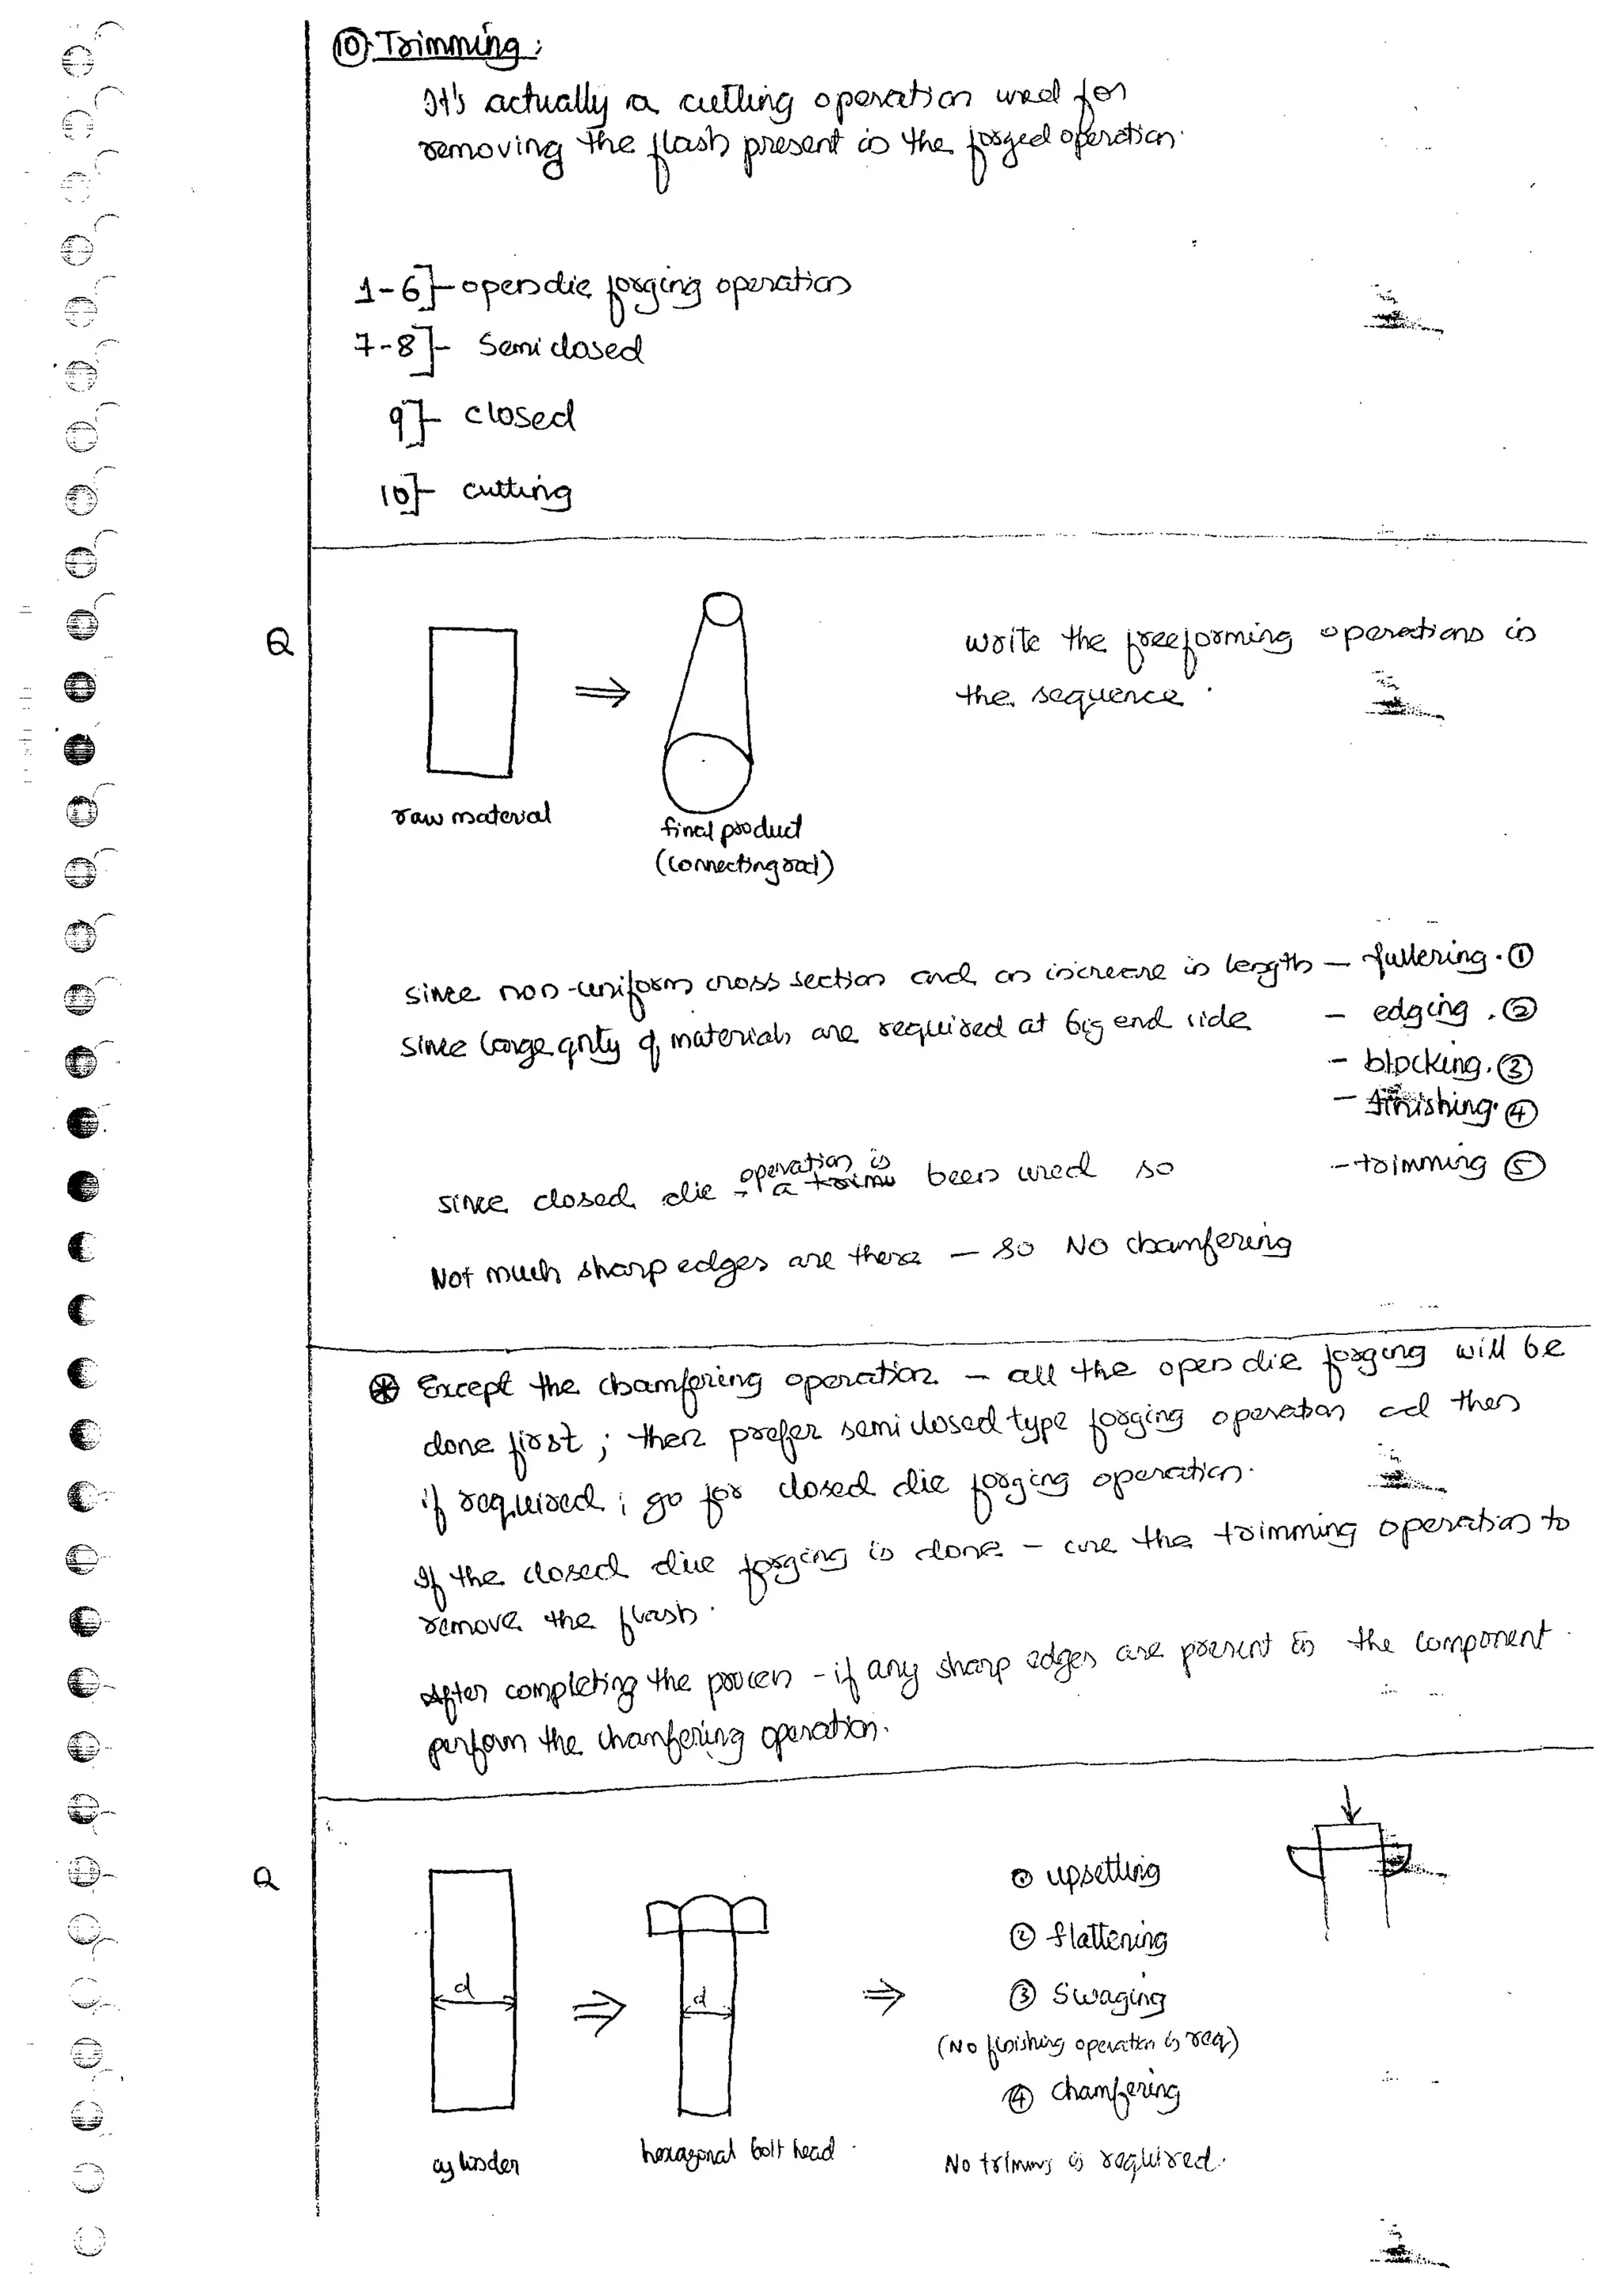 ⑩. Trimming:
It's actually a cutting operation used for
removing the flash present in the forged operation.
1-6]- open die forging operation
7-8]- Semi closed
9]- closed
10]- cutting
Q
write the freeforming operations in
the sequence.
raw material
final product
(connecting rod)
since non-uniform cross section and an increase in length — fullering. ①
since large qnty of materials are required at big end side - edging. ②
- blocking. ③
- finishing. ④
since closed die operation is been used so - trimming ⑤
Not much sharp edges are there — so NO chamfering
⊛ Except the chamfering operation - all the open die forging will be
done first; then prefer semi closed type forging operation and then
if required; go for closed die forging operation.
If the closed die forging is done - use the trimming operation to
remove the flash.
After completing the process - if any sharp edges are present in the component
perform the chamfering operation.
Q
① upsetting
② flattening
③ Swaging
(No finishing operation is req)
④ chamfering
No trimming is required.
d
d
cylinder
hexagonal bolt head